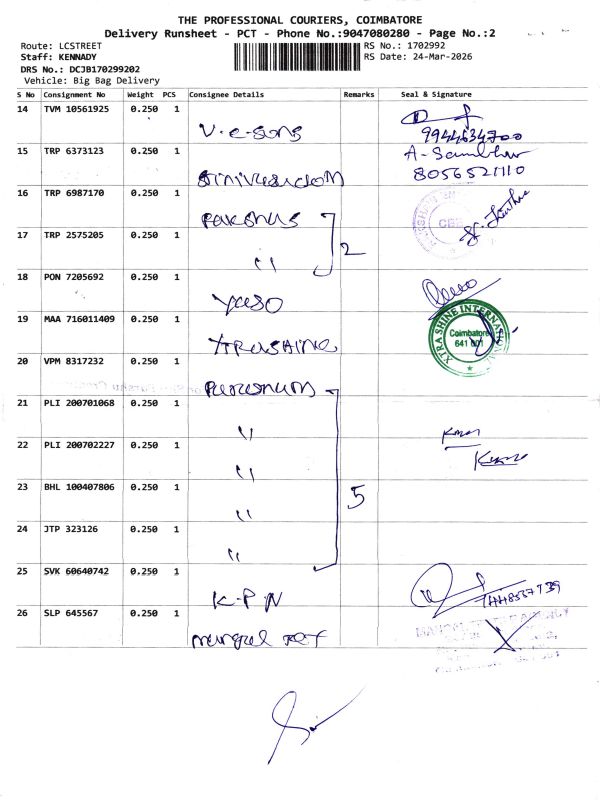 THE PROFESSIONAL COURIERS, COIMBATORE
Delivery Runsheet - PCT - Phone No.:9047080280 - Page No.:2
Route: LCSTREET
Staff: KENNADY
DRS No.: DCJB170299202
Vehicle: Big Bag Delivery
RS No.: 1702992
RS Date: 24-Mar-2026
S No Consignment No Weight PCS Consignee Details Remarks Seal & Signature
14 TVM 10561925 0.250 1 V.e-sons
9944634700
15 TRP 6373123 0.250 1
8056521110
16 TRP 6987170 0.250 1
17 TRP 2575205 0.250 1 " 2
18 PON 7205692 0.250 1
19 MAA 716011409 0.250 1
XTRA SHINE INTERNATIONAL
Coimbatore
641 001
20 VPM 8317232 0.250 1
21 PLI 200701068 0.250 1 "
22 PLI 200702227 0.250 1 "
23 BHL 100407806 0.250 1 " 5
24 JTP 323126 0.250 1 "
25 SVK 60640742 0.250 1 K-P-N
26 SLP 645567 0.250 1